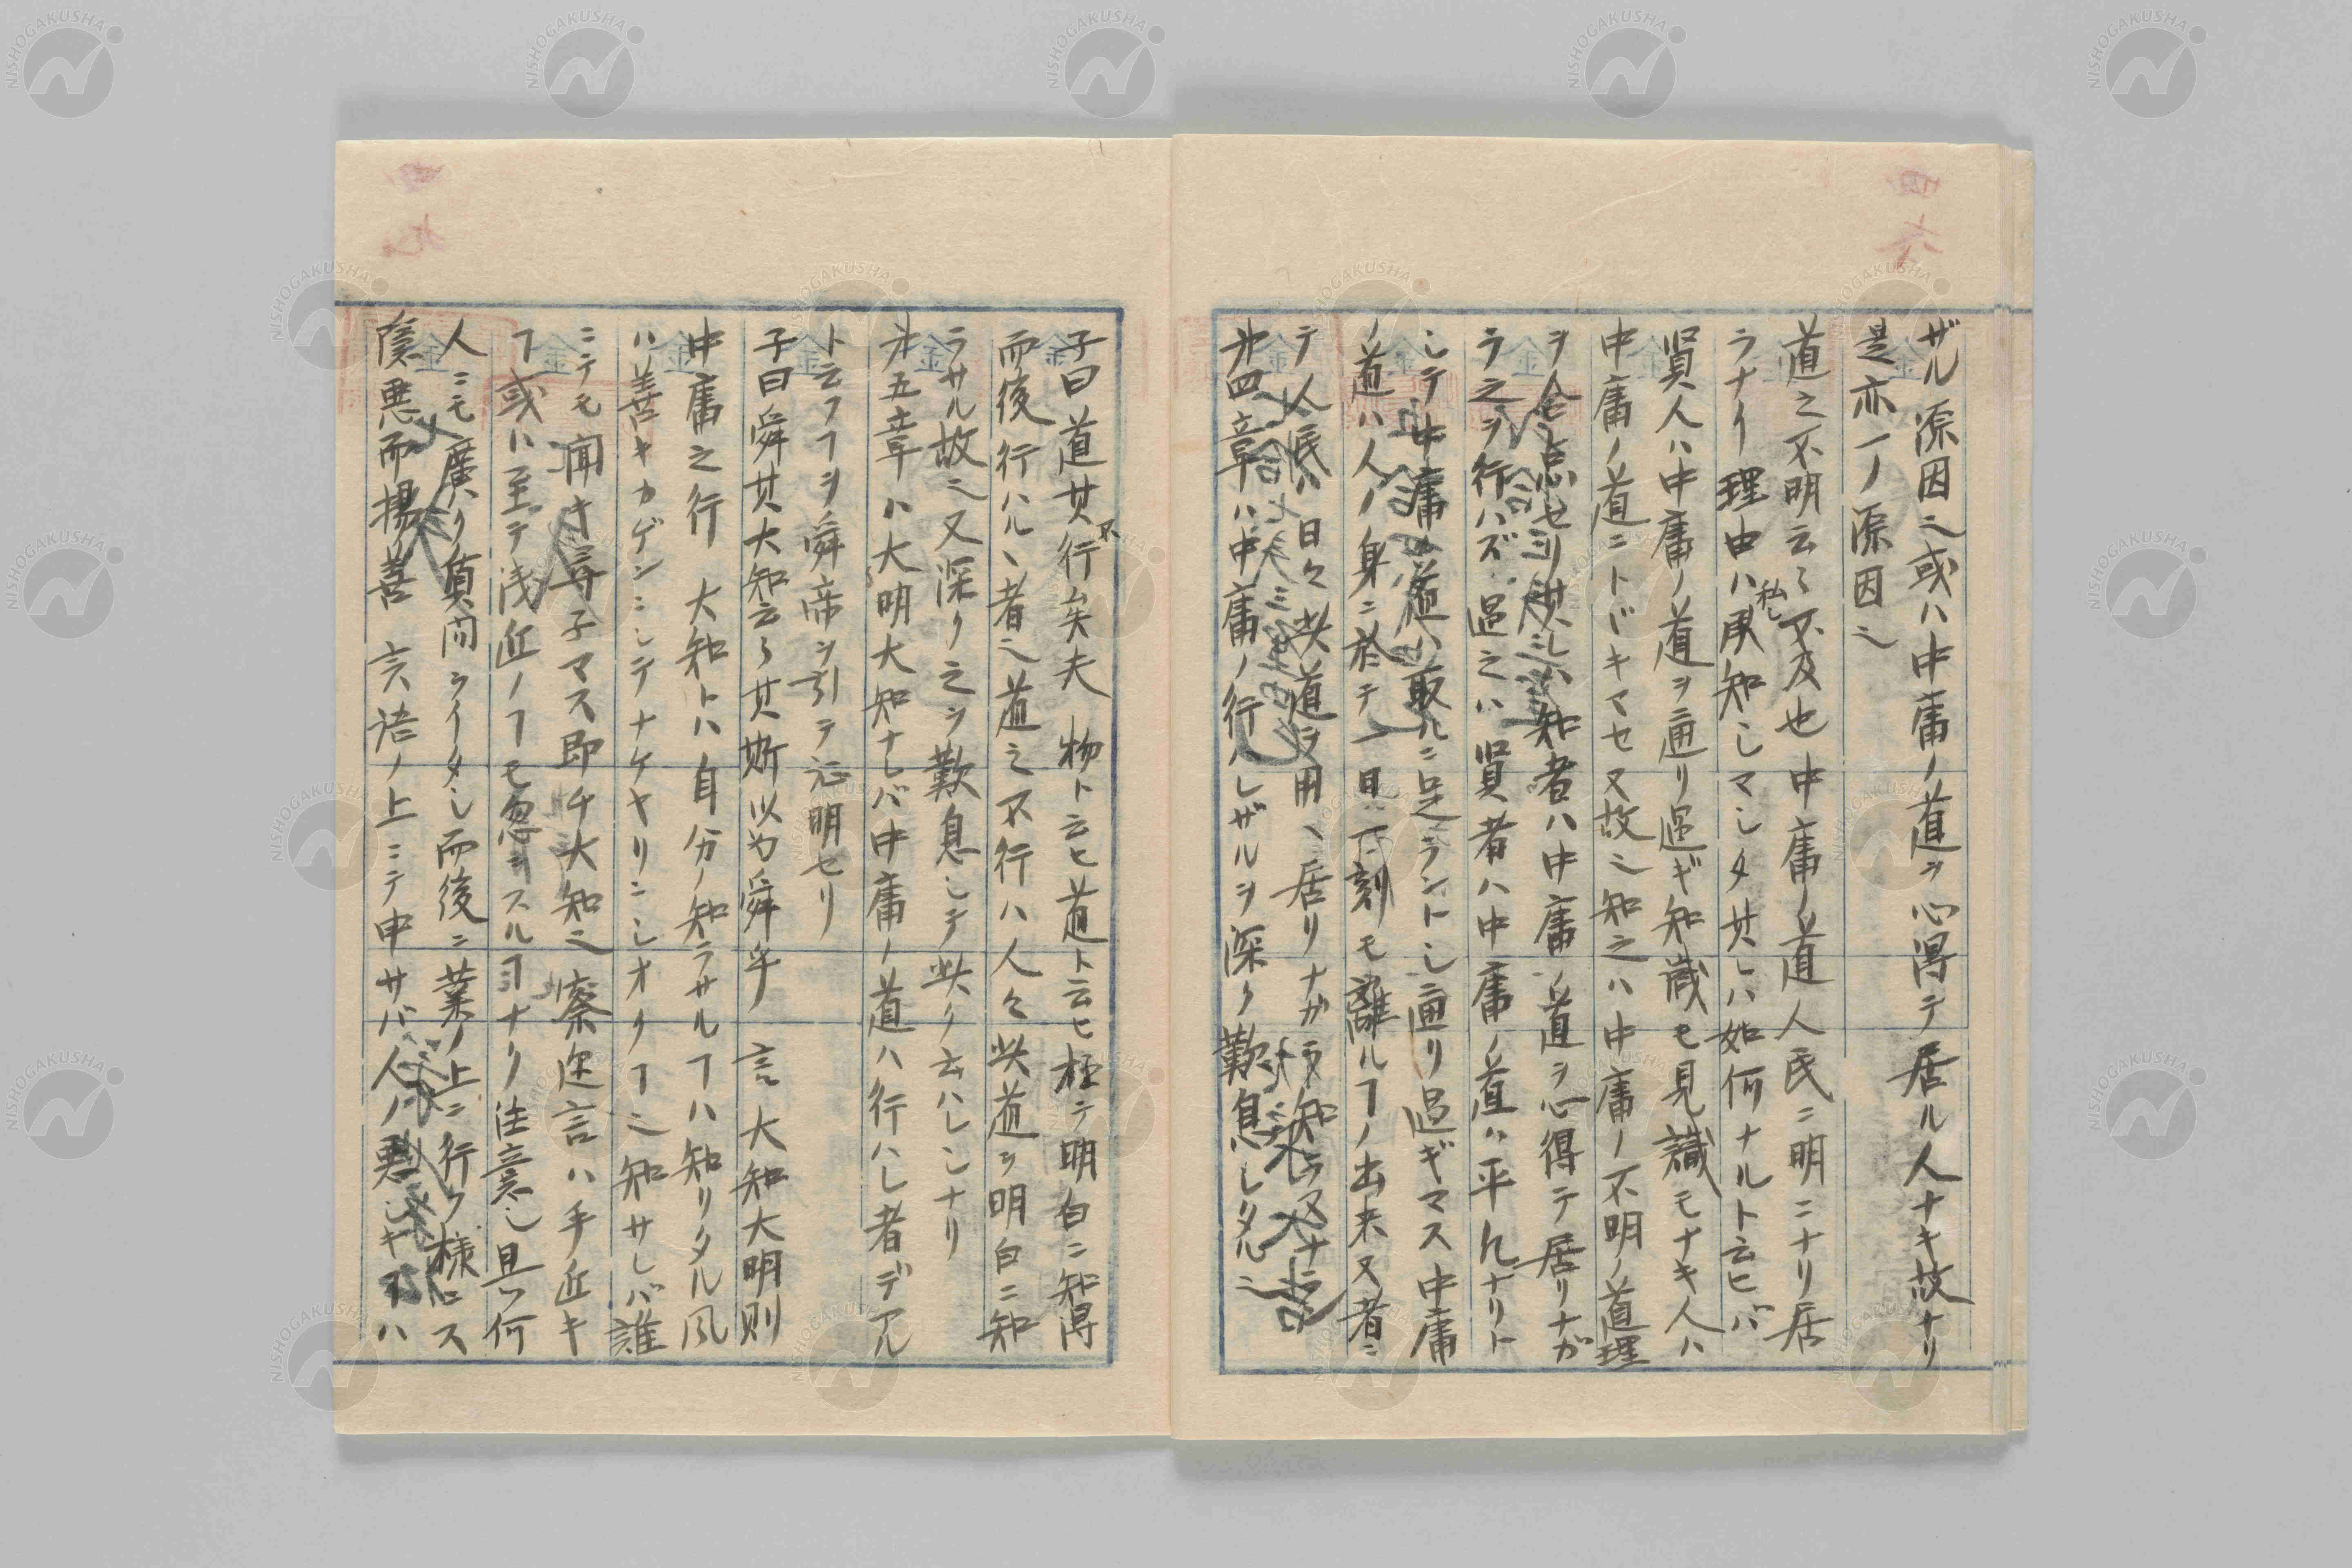 ザル源因ニ或ハ中庸ノ道ヲ心得テ居ル人ナキ故ナリ
是亦一ノ源因ニ
道之不明云々不及也 中庸ノ道人民ニ明ニナリ居
ラナイ理由ハ私シ承知シマシタ其レハ如何ナルト云ヒバ
賢人ハ中庸ノ道ヲ通リ過ギ知識モ見識モナキ人ハ
中庸ノ道ニトドキマセヌ故ニ知之ハ中庸ノ不明ノ道理
ヲ合点セリ 知者ハ中庸ノ道ヲ心得テ居リナガ
ラ之ヲ行ハズ過之ハ賢者ハ中庸ノ道ハ平凡ナリト
シテ中庸ノ道ハ取ルニ足ラントシ通リ過ギマス中庸
ノ道ハ人ノ身ニ於テ一日一刻モ離ルヿノ出来ヌ者ニ
テ人民ハ日々此道ヲ用ヽ居リナガラ知ラヌナ
第四章ハ中庸ノ行ハレザルヲ深ク歎息シタルニ
子曰道其不行矣夫 物ト云ヒ道ト云ヒ極テ明白ニ知得
而後行ハルヽ者ニ道之不行ハ人々此道ヲ明白ニ知
ラサル故ニ又深ク之ヲ歎息シテ此ク云ハレシナリ
第五章ハ大明大知ナレバ中庸ノ道ハ行ハレ者デアル
ト云フヿヲ舜帝ヲ引テ証明セリ
子曰舜其大知云々其斯以為舜乎 言大知大明則
中庸之行 大知トハ自分ノ知ラサルヿハ知リタル風
ハ善キカゲンニシテナケヤリニシオクヿニ知サレバ誰
ニテモ聞キ尋子マス即チ大知ニ察迩言ハ手近キ
ヿ或ハ至テ浅近ノヿモ忽ヲスルヿナク注意シ且ツ何
人ニモ廣ク質問ライタシ而後ニ業ノ上ニ行ウ様ニス
隠悪而揚善 言語ノ上ニテ申サバ人ノ悪シキヿハ